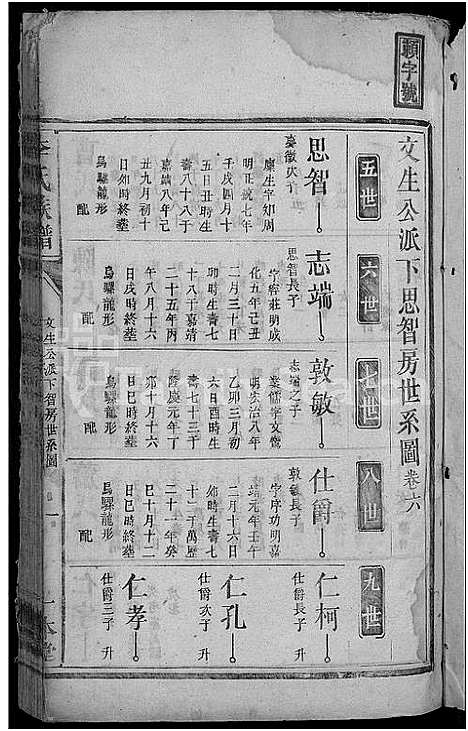 賴字號
文生公派下思智房世系圖卷六
五世
六世
七世
八世
九世
思智
廩生字知周
明正統七年
壬戌四月十
五日丑時生
壽八十八于
嘉靖八年己
丑九月初十
日卯時終墓
烏騾龍形
配
志端
思智長子
字容莊明成
化五年己丑
二月三十日
卯時生壽七
十八于嘉靖
二十五年丙
午八月十六
日戌時終墓
烏騾龍形
配
敦敏
志端之子
業儒字文齋
明弘治八年
乙卯三月初
六日酉時生
壽七十三于
隆慶元年丁
卯十月十六
日巳時終墓
烏騾龍形
配
仕爵
敦敏長子
字序功明嘉
靖元年壬午
二月十六日
卯時生壽七
十二于萬歷
二十一年癸
巳十月十二
日巳時終墓
烏騾龍形
配
仁柯
仕爵長子
升
仁孔
仕爵次子
升
仁孝
仕爵三子
升
李氏族譜
文生公派下智房世系圖
一
一本堂